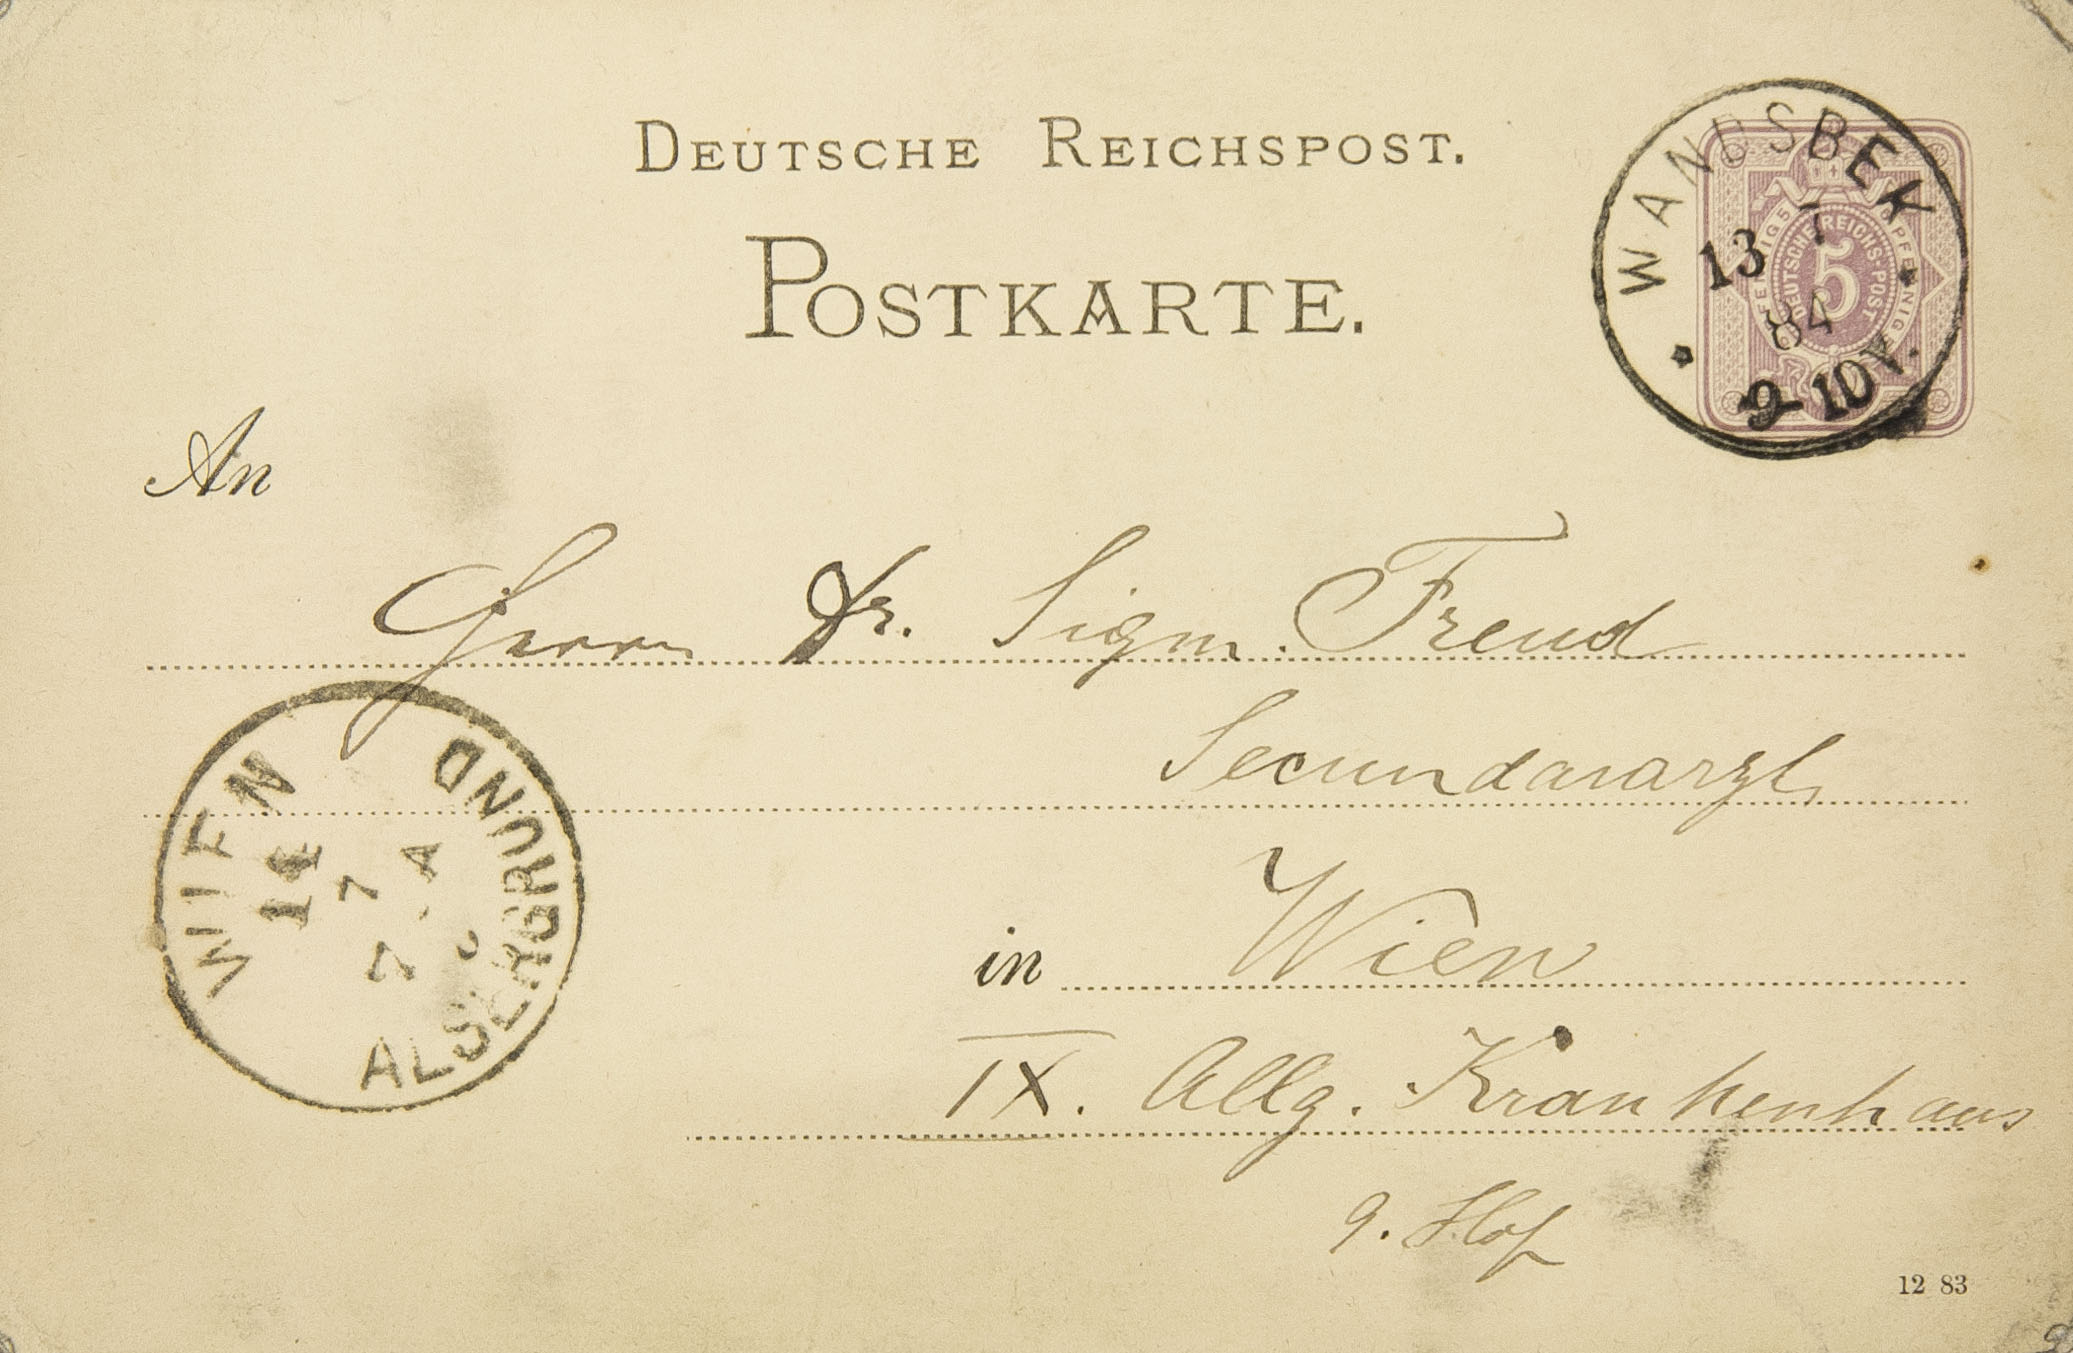 DEUTSCHE REICHSPOST.
POSTKARTE.
WANDSBEK
13 7
84
9-10V.
PFENNIG 5 PFENNIG
DEUTSCHE REICHS-POST
5
An
Herrn Dr. Sigm. Freud
Secundararzt
in Wien
IX. Allg. Krankenhaus
9. Hof
WIEN
14
7
7 A
ALSERGRUND
12 83